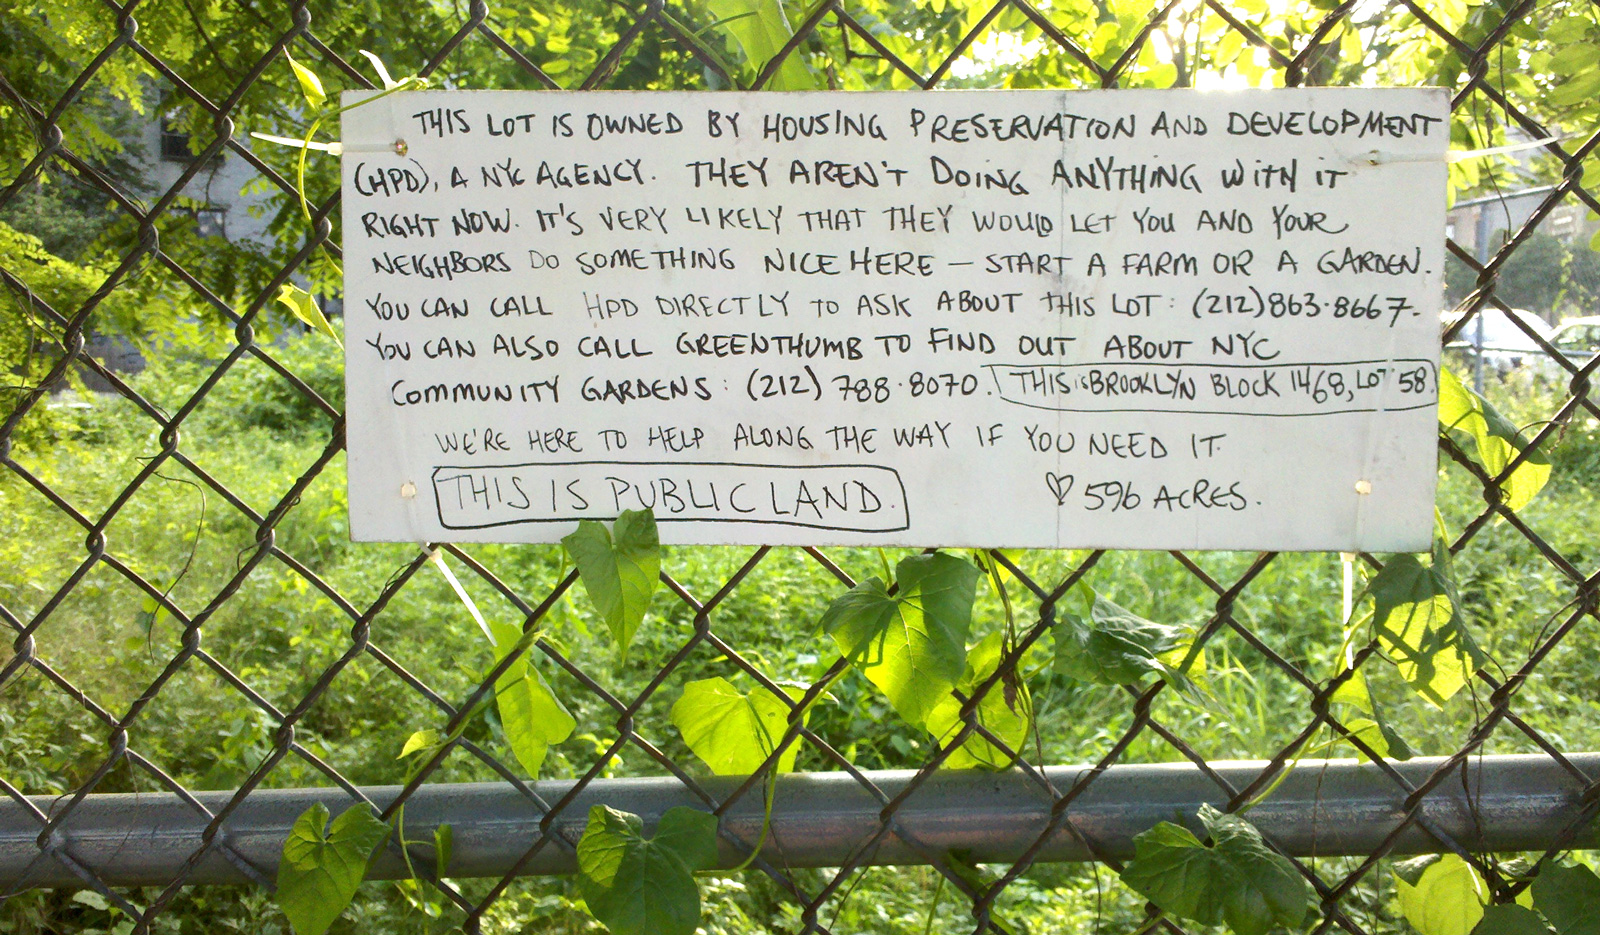 THIS LOT IS OWNED BY HOUSING PRESERVATION AND DEVELOPMENT
(HPD), A NYC AGENCY. THEY AREN'T DOING ANYTHING WITH IT
RIGHT NOW. IT'S VERY LIKELY THAT THEY WOULD LET YOU AND YOUR
NEIGHBORS DO SOMETHING NICE HERE — START A FARM OR A GARDEN.
YOU CAN CALL HPD DIRECTLY TO ASK ABOUT THIS LOT: (212)863·8667.
YOU CAN ALSO CALL GREENTHUMB TO FIND OUT ABOUT NYC
COMMUNITY GARDENS: (212) 788·8070. THIS is BROOKLYN BLOCK 1468, LOT 58.
WE'RE HERE TO HELP ALONG THE WAY IF YOU NEED IT.
THIS IS PUBLIC LAND. ♡ 596 ACRES.